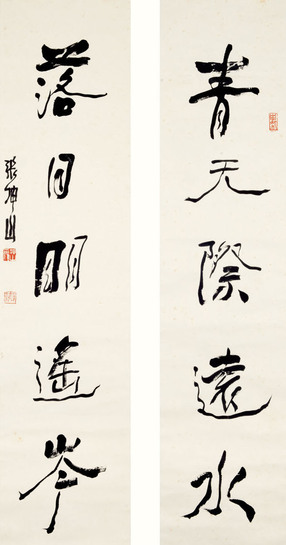 青天際遠水
落日明遙岑
張坤山